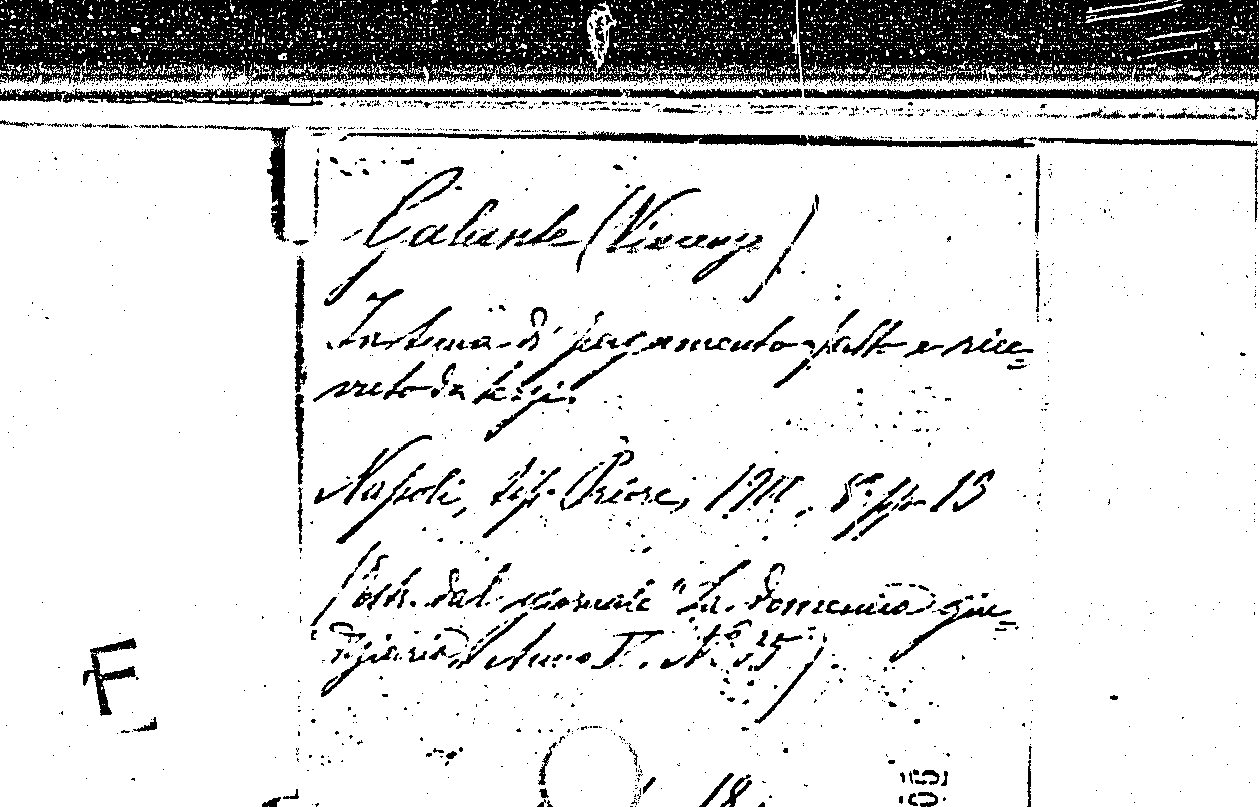 Galante (Vincenzo)
In tema di pagamento fatto e rice=
vuto da terzi.
Napoli, tip. Priore, 1911, 8° pp. 13
(Estr. dal giornale "La domenica giu=
diziaria" Anno V. N.°
F
18